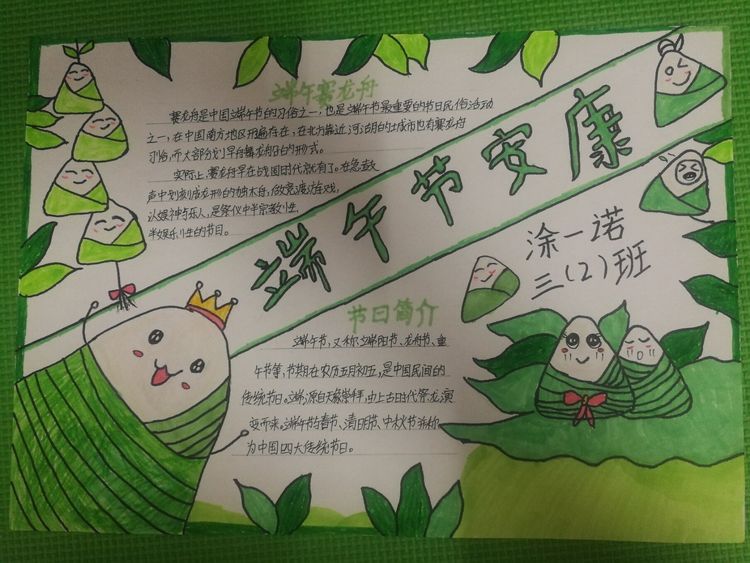 端午赛龙舟
赛龙舟是中国端午节的习俗之一,也是端午节最重要的节日民俗活动
之一,在中国南方地区普遍存在,在北方靠近河湖的城市也有赛龙舟
习俗,而大部分划旱舟舞龙舟的形式。
实际上,赛龙舟早在战国时代就有了。在急鼓
声中划刻成龙形的独木舟,做竞渡游戏,
以娱神与乐人,是祭仪中半宗教性、
半娱乐性的节目。
端午节安康
涂一诺
三(2)班
节日简介
端午节,又称端阳节、龙舟节、重
午节等,节期在农历五月初五,是中国民间的
传统节日。端源自天象崇拜,由上古时代祭龙演
变而来。端午节与春节、清明节、中秋节并称
为中国四大传统节日。